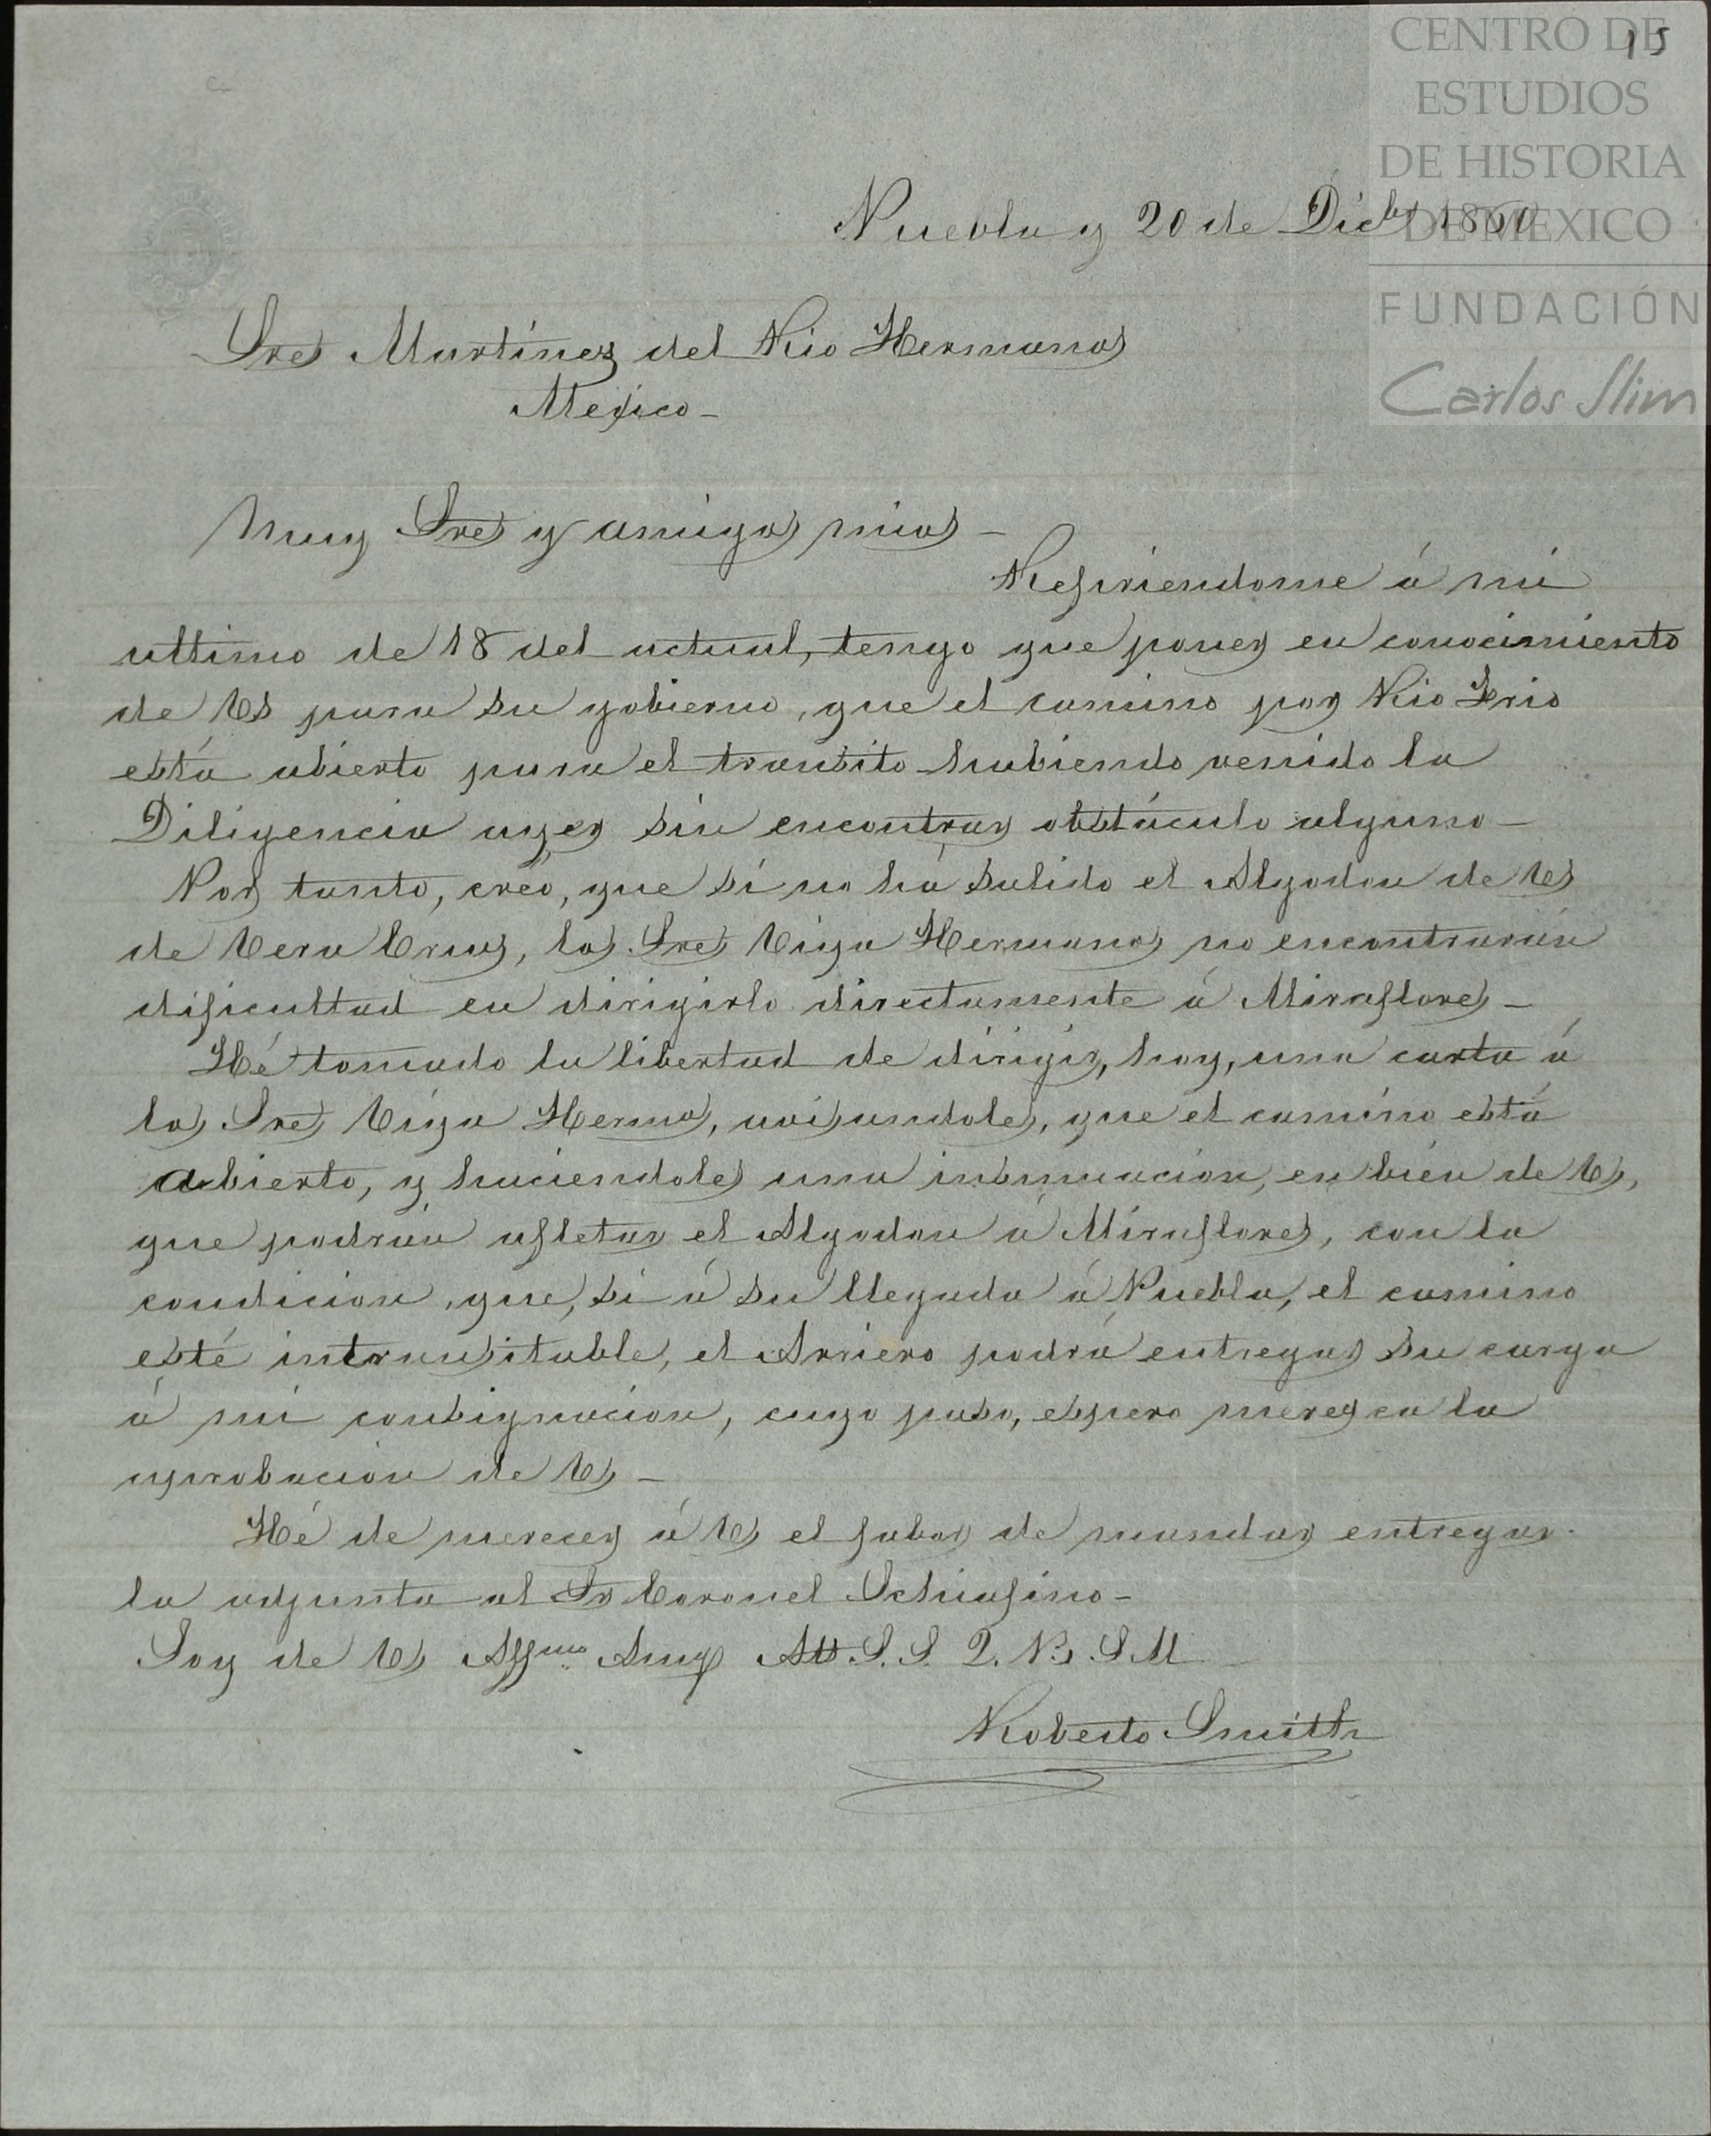 15
CENTRO DE
ESTUDIOS
DE HISTORIA
DE MEXICO
FUNDACIÓN
Carlos Slim
Puebla y 20 de Dicbe 1860
Sres Martínez del Rio Hermanos
Mexico -
Muy Sres y amigos mios -
Refiriendome á mi
ultimo de 18 del actual, tengo que poner en conocimiento
de Vs para su gobierno, que el camino por Rio Frio
está abierto para el transito habiendo venido la
Diligencia ayer sin encontrar obstáculo alguno -
Por tanto, creo, que si no há salido el Algodon de Vs
de Vera Cruz, los Sres Viya Hermanos no encontrarán
dificultad en dirigirlo directamente á Miraflores -
Hé tomado la libertad de dirigir, hoy, una carta á
los Sres Viya Hermos, avisandoles, que el camino está
abierto, y haciendoles una insinuacion, en bien de Vs,
que podrán afletar el Algodon á Miraflores, con la
condicion, que, si á su llegada á Puebla, el camino
esté intransitable, el Arriero podrá entregar su carga
á mi consignacion, cuyo paso, espero merezca la
aprobacion de Vs -
Hé de merecer á Vs el fabor de mandar entregar
la adjunta al Sr Coronel Schiafino -
Soy de Vs Affmo Amigo Atto. S. S. Q. B. S. M
Roberto Smith